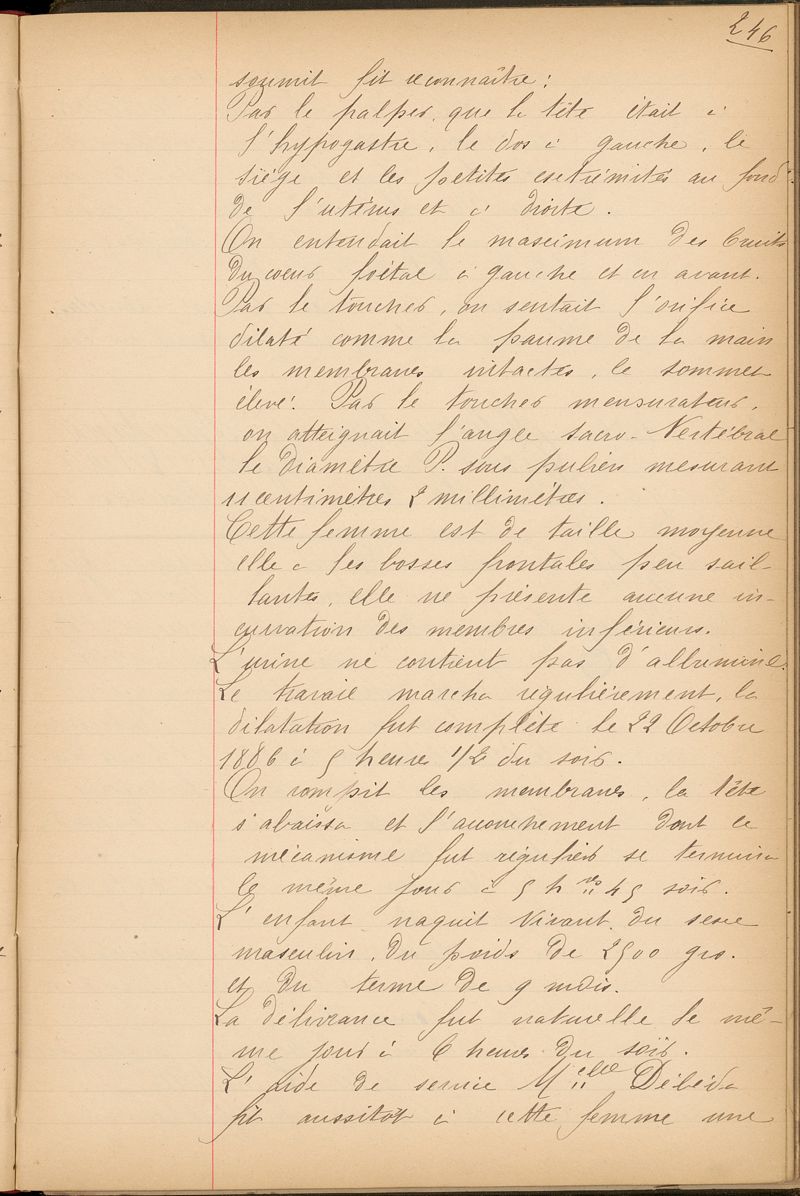 246
soumit fit reconnaître :
Par le palper, que la tête était à
l'hypogastre, le dos à gauche, le
siège et les petites extrémités au fond
de l'utérus et à droite.
On entendait le maximum des bruits
du cœur foétal à gauche et en avant.
Par le toucher, on sentait l'orifice
dilaté comme la paume de la main
les membranes intactes, le sommet
élevé. Par le toucher mensurateur,
on atteignait l'angle sacro-Vertébral
le diamètre P. sous pubien mesurant
11 centimètres 2 millimètres.
Cette femme est de taille moyenne
elle a les bosses frontales peu sail-
lantes, elle ne présente aucune in-
curvation des membres inférieurs.
L'urine ne contient pas d'albumine.
Le travail marcha régulièrement, la
dilatation fut complète le 22 Octobre
1886 à 5 heures 1/2 du soir.
On rompit les membranes, la tête
s'abaissa et l'accouchement dont le
mécanisme fut régulier se termina
le même jour à 5 h res 45 soir.
L'enfant naquit vivant du sexe
masculin, du poids de 2500 grs.
et du terme de 9 mois.
La délivrance fut naturelle le mê-
me jour à 6 heures du soir.
L'aide de service Melle
fit aussitôt à cette femme une